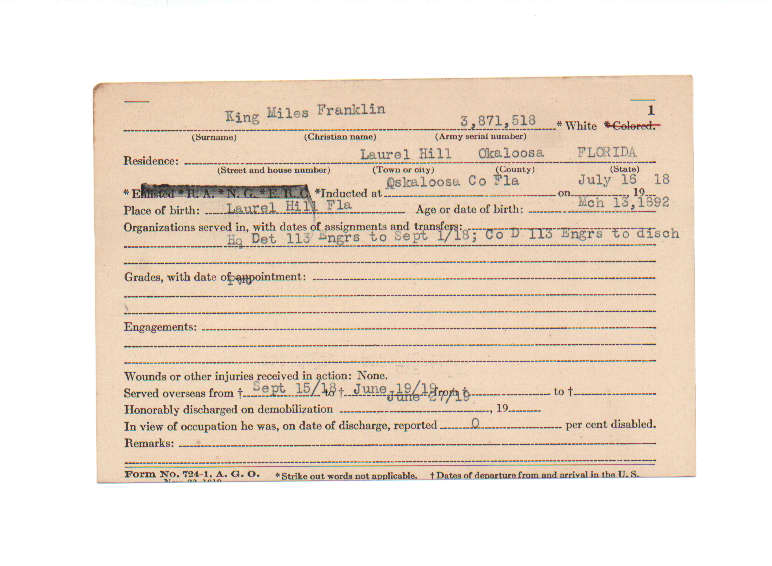 1
King Miles Franklin 3,871,518 * White * Colored.
(Surname) (Christian name) (Army serial number)
Residence: Laurel Hill Okaloosa FLORIDA
(Street and house number) (Town or city) (County) (State)
* Enlisted * R. A. * N. G. * E. R. C. *Inducted at Oskaloosa Co Fla on July 16 19 18
Place of birth: Laurel Hill Fla Age or date of birth: Mch 13,1892
Organizations served in, with dates of assignments and transfers:
Hq Det 113 Engrs to Sept 1/18; Co D 113 Engrs to disch
Grades, with date of appointment:
Pvt
Engagements:
Wounds or other injuries received in action: None.
Served overseas from † Sept 15/18 to † June 19/19 from † to †
Honorably discharged on demobilization June 27/19, 19
In view of occupation he was, on date of discharge, reported 0 per cent disabled.
Remarks:
Form No. 724-1, A. G. O. *Strike out words not applicable. † Dates of departure from and arrival in the U. S.